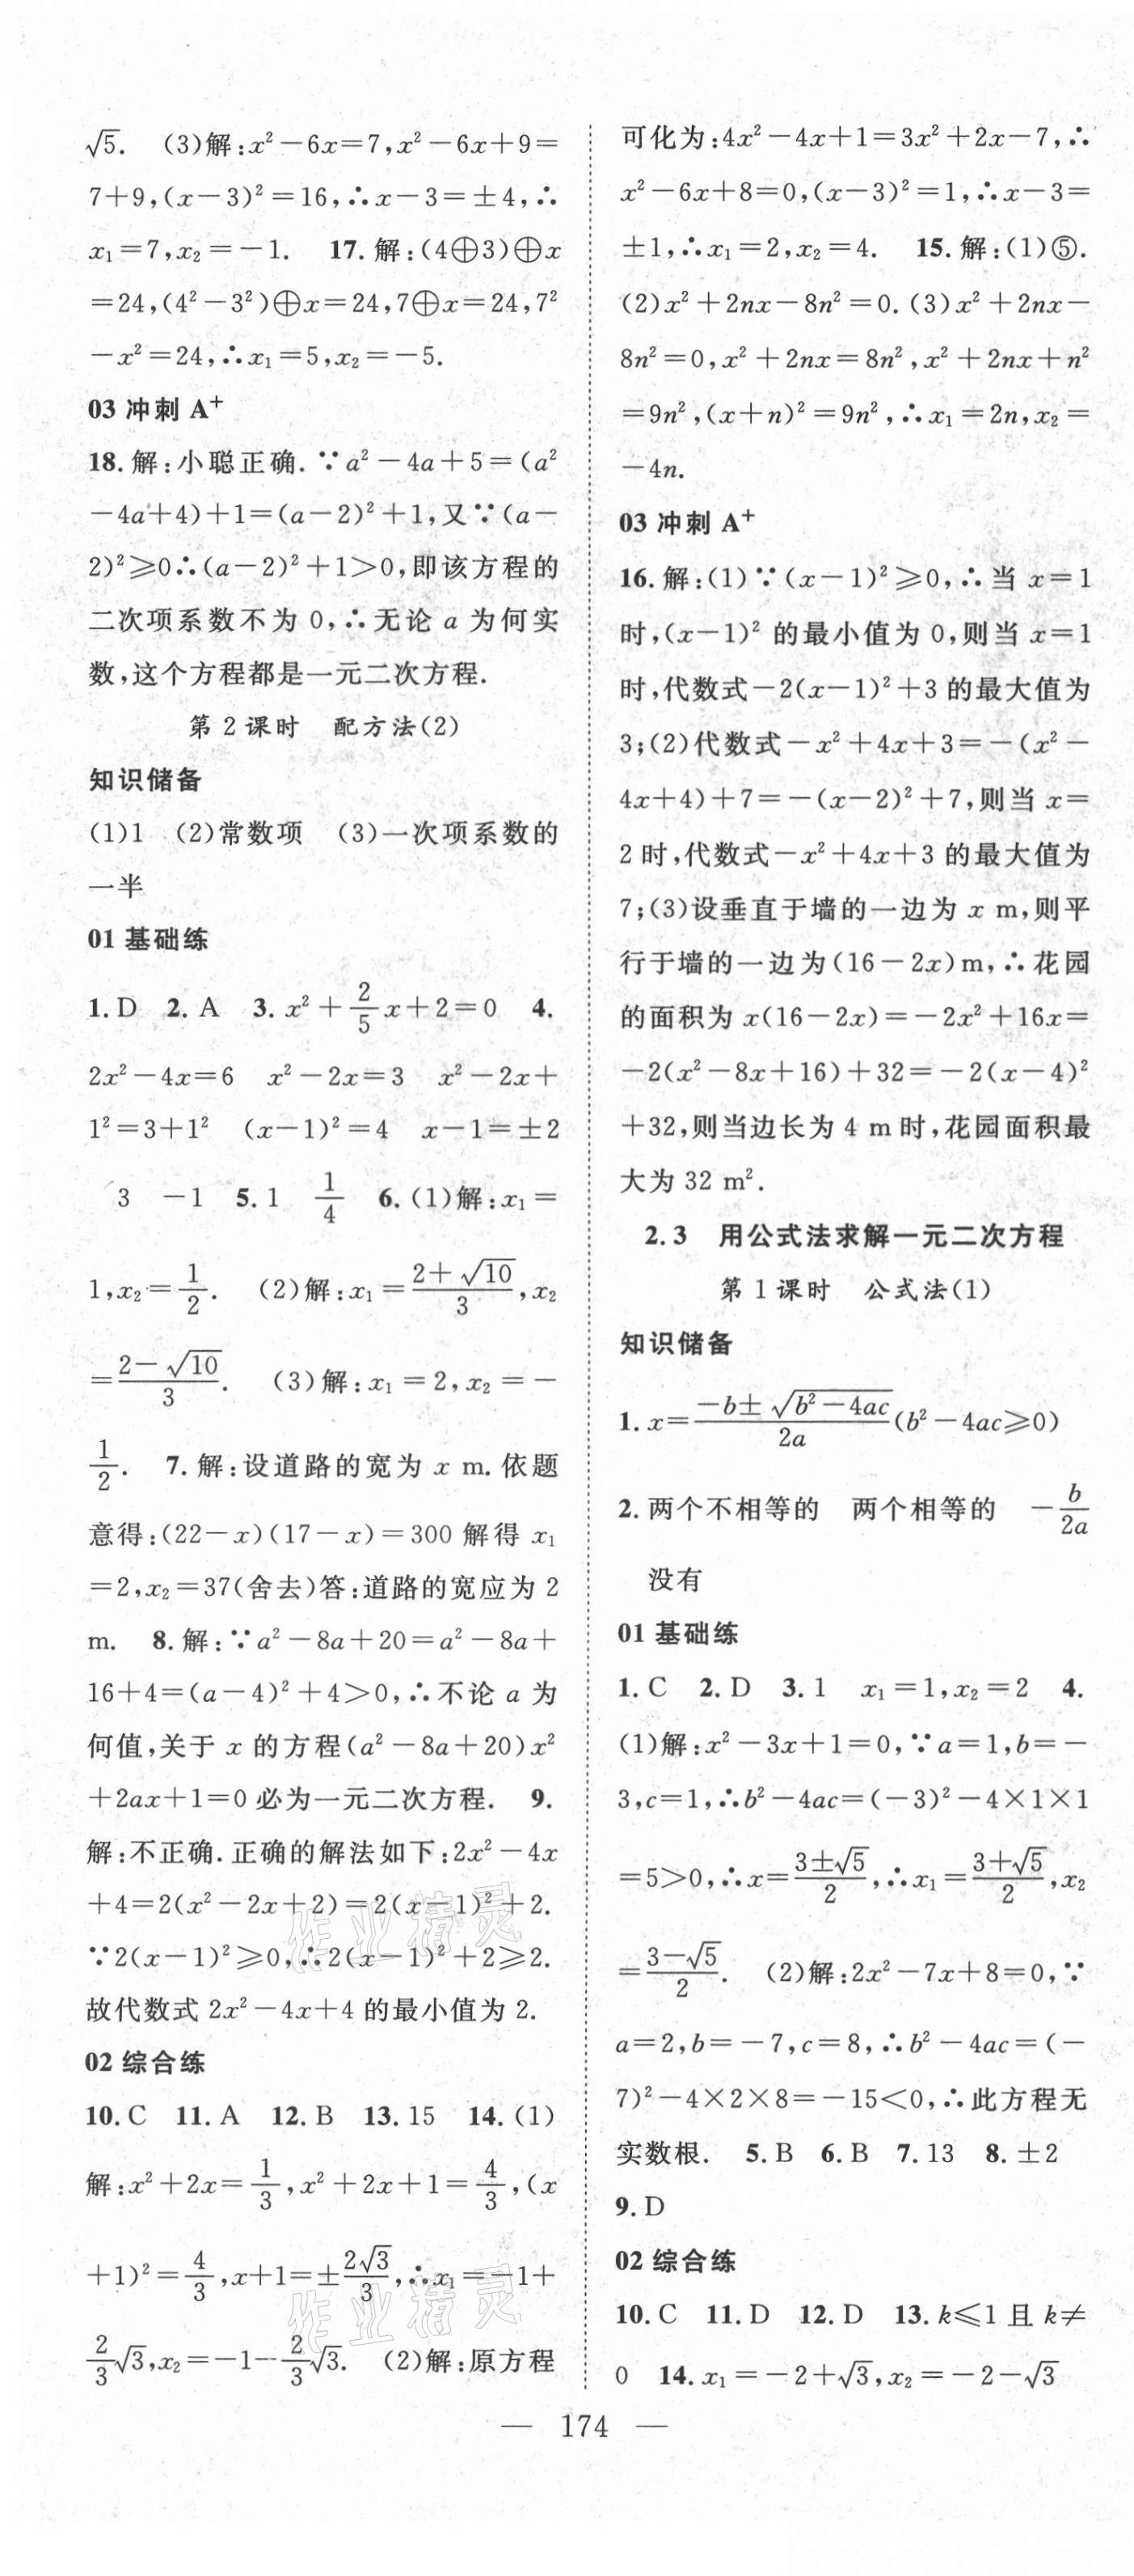 √5. (3)解:x²-6x=7,x²-6x+9=
7+9,(x-3)²=16,∴x-3=±4,∴
x₁=7,x₂=-1. 17.解:(4⊕3)⊕x
=24,(4²-3²)⊕x=24,7⊕x=24,7²
-x²=24,∴x₁=5,x₂=-5.
03 冲刺 A⁺
18.解:小聪正确.∵a²-4a+5=(a²
-4a+4)+1=(a-2)²+1,又∵(a-
2)²≥0∴(a-2)²+1>0,即该方程的
二次项系数不为 0,∴无论 a 为何实
数,这个方程都是一元二次方程.
第 2 课时 配方法(2)
知识储备
(1)1 (2)常数项 (3)一次项系数的
一半
01 基础练
1.D 2.A 3.x²+2/5x+2=0 4.
2x²-4x=6 x²-2x=3 x²-2x+
1²=3+1² (x-1)²=4 x-1=±2
3 -1 5.1 1/4 6.(1)解:x₁=
1,x₂=1/2. (2)解:x₁=(2+√10)/3,x₂
=(2-√10)/3. (3)解:x₁=2,x₂=-
1/2. 7.解:设道路的宽为 x m.依题
意得:(22-x)(17-x)=300 解得 x₁
=2,x₂=37(舍去)答:道路的宽应为 2
m. 8.解:∵a²-8a+20=a²-8a+
16+4=(a-4)²+4>0,∴不论 a 为
何值,关于 x 的方程(a²-8a+20)x²
+2ax+1=0 必为一元二次方程. 9.
解:不正确.正确的解法如下:2x²-4x
+4=2(x²-2x+2)=2(x-1)²+2.
∵2(x-1)²≥0,∴2(x-1)²+2≥2.
故代数式 2x²-4x+4 的最小值为 2.
02 综合练
10.C 11.A 12.B 13.15 14.(1)
解:x²+2x=1/3,x²+2x+1=4/3,(x
+1)²=4/3,x+1=±2√3/3,∴x₁=-1+
2/3√3,x₂=-1-2/3√3. (2)解:原方程
可化为:4x²-4x+1=3x²+2x-7,∴
x²-6x+8=0,(x-3)²=1,∴x-3=
±1,∴x₁=2,x₂=4. 15.解:(1)⑤.
(2)x²+2nx-8n²=0.(3)x²+2nx-
8n²=0,x²+2nx=8n²,x²+2nx+n²
=9n²,(x+n)²=9n²,∴x₁=2n,x₂=
-4n.
03 冲刺 A⁺
16.解:(1)∵(x-1)²≥0,∴当 x=1
时,(x-1)² 的最小值为 0,则当 x=1
时,代数式-2(x-1)²+3 的最大值为
3;(2)代数式-x²+4x+3=-(x²-
4x+4)+7=-(x-2)²+7,则当 x=
2 时,代数式-x²+4x+3 的最大值为
7;(3)设垂直于墙的一边为 x m,则平
行于墙的一边为(16-2x)m,∴花园
的面积为 x(16-2x)=-2x²+16x=
-2(x²-8x+16)+32=-2(x-4)²
+32,则当边长为 4 m 时,花园面积最
大为 32 m².
2.3 用公式法求解一元二次方程
第 1 课时 公式法(1)
知识储备
1.x=(-b±√(b²-4ac))/2a(b²-4ac≥0)
2.两个不相等的 两个相等的 -b/2a
没有
01 基础练
1.C 2.D 3.1 x₁=1,x₂=2 4.
(1)解:x²-3x+1=0,∵a=1,b=-
3,c=1,∴b²-4ac=(-3)²-4×1×1
=5>0,∴x=(3±√5)/2,∴x₁=(3+√5)/2,x₂
=(3-√5)/2. (2)解:2x²-7x+8=0,∵
a=2,b=-7,c=8,∴b²-4ac=(-
7)²-4×2×8=-15<0,∴此方程无
实数根. 5.B 6.B 7.13 8.±2
9.D
02 综合练
10.C 11.D 12.D 13.k≤1 且 k≠
0 14.x₁=-2+√3,x₂=-2-√3
— 174 —
作业精灵
作业精灵